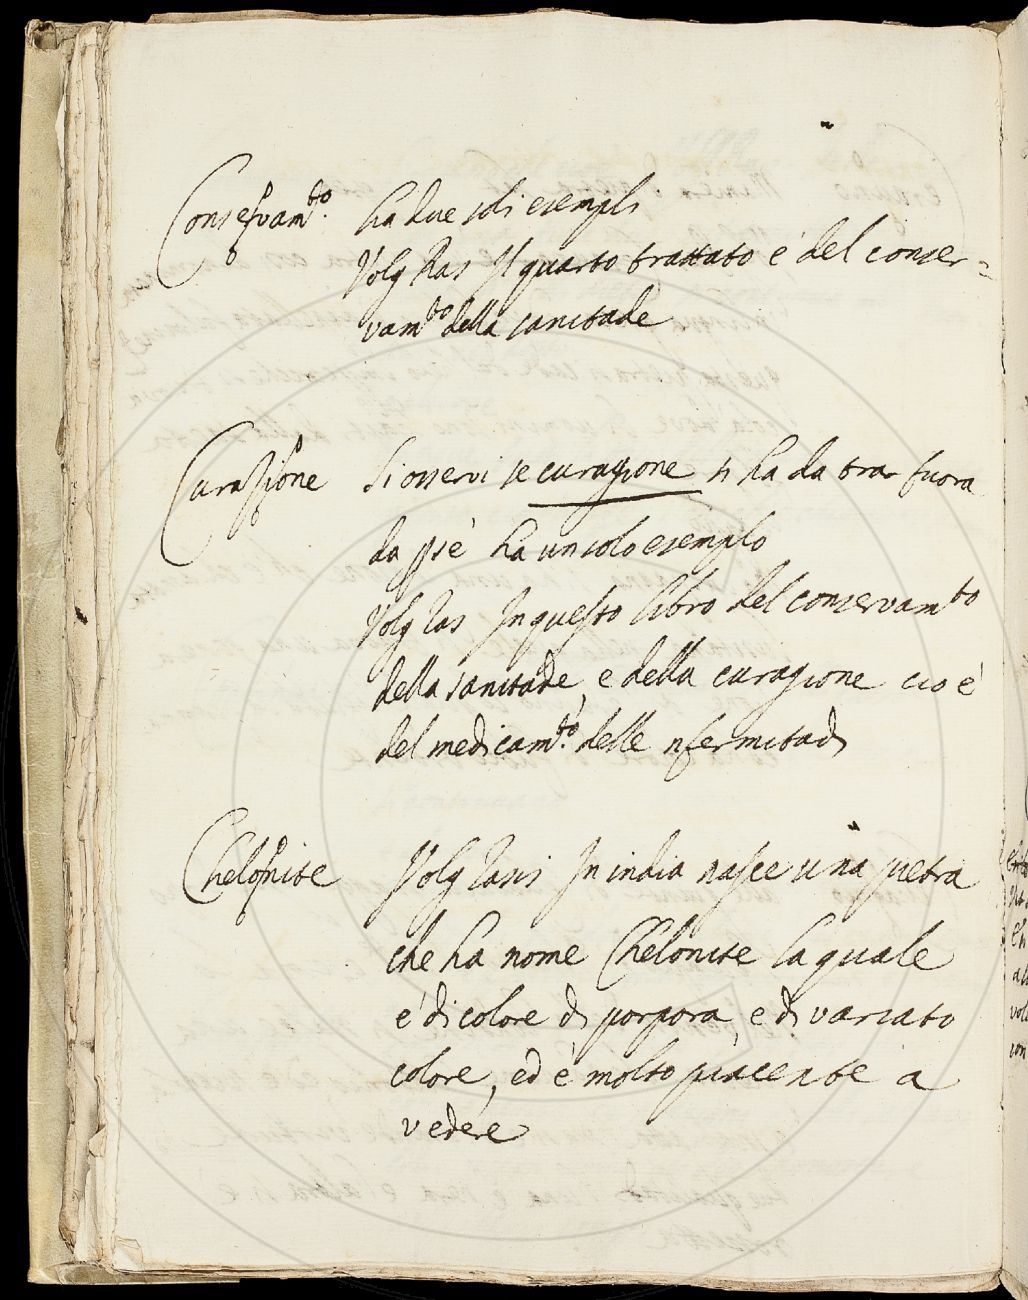 Conservam.to ha due soli esempli
Volg Ras Il quarto trattato è del conser=
vam.to della sanitade
Curazione Si osservi se curagione si ha da trar fuora
da p se ha un solo esemplo
Volg Ras In questo libro del conservamto
della sanitade, e della curagione cio è
del medicam.to delle nfermitadi
Chelonite Volg Rasis In india nasce una pietra
che ha nome Chelonite la quale
è di colore di porpora, e di variato
colore, ed è molto piacente a
vedere